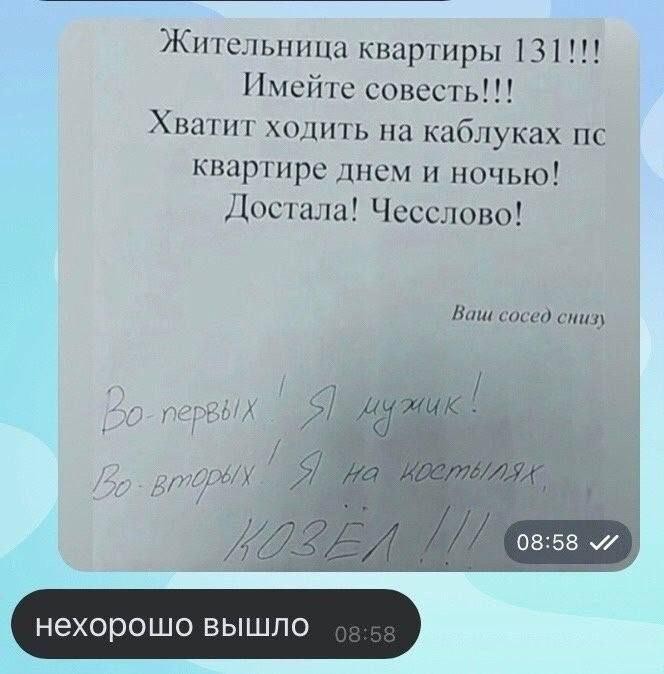 Жительница квартиры 131!!!
Имейте совесть!!!
Хватит ходить на каблуках по
квартире днем и ночью!
Достала! Чесслово!
Ваш сосед снизу
Во-первых! Я мужик!
Во-вторых! Я на костылях,
КОЗЁЛ!!!
08:58
нехорошо вышло 08:58